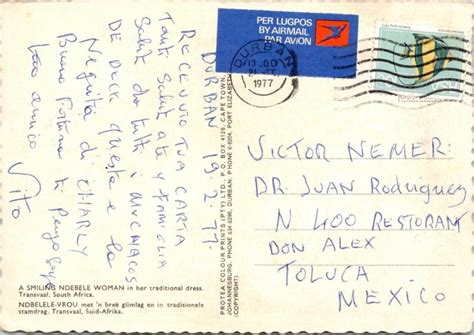 PER LUGPOS
BY AIRMAIL
PAR AVION
DURBAN
13.00
1977
DURBAN 19.2.77.
RECEVUTO TUA CARTA
TANTI SALUT A TE y FAMIGLIA
SALUT DO TUTTI i MUCHACOS
DE DECK queste e la
Negrita di CHARLY
Buona Fortuna ti
tuo amico
Vito
VICTOR NEMER:
DR JUAN Rodriguez
N 400 RESTORAM
DON ALEX
TOLUCA
MEXICO
PROTEA COLOUR PRINTS (PTY) LTD. P.O. BOX 4126, CAPE TOWN.
JOHANNESBURG. PHONE 834-5295. DURBAN. PHONE 6-6094. PORT ELIZABETH
(COPYRIGHT)
A SMILING NDEBELE WOMAN in her traditional dress.
Transvaal, South Africa.
NDEBELE-VROU met 'n breë glimlag en in tradisionele
stamdrag. Transvaal, Suid-Afrika.